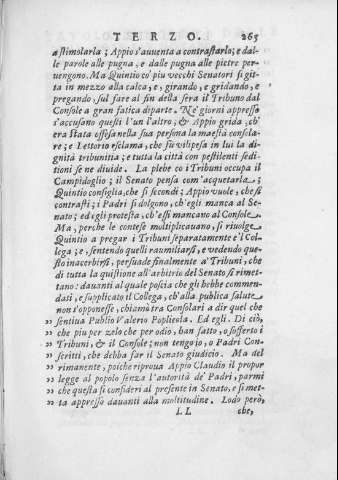 TERZO. 265
a stimolarla; Appio s'auuenta a contrastarlo; e dal-
le parole alle pugna, e dalle pugna alle pietre per-
uengono. Ma Quintio co' piu vecchi Senatori si git-
ta in mezzo alla calca; e, girando, e gridando, e
pregando, sul fare al fin della sera il Tribuno dal
Console a gran fatica diparte. Ne' giorni appresso
s'accusano questi l'un l'altro; & Appio grida, ch'
era stata offesa nella sua persona la maestà consola-
re; e Lettorio esclama, che fù vilipesa in lui la di-
gnità tribunitia; e tutta la città con pestilenti sedi-
tioni se ne diuide. La plebe co i Tribuni occupa il
Campidoglio; il Senato pensa com'acquetarla;
Quintio consiglia, che si secondi; Appio vuole, che si
contrasti; i Padri si dolgono, ch'egli manca al Se-
nato; ed egli protesta, ch'essi mancano al Console.
Ma, perche le contese moltiplicauano, si riuolge
Quintio a pregar i Tribuni separatamente e'l Col-
lega; e, sentendo quelli raumiliarsi, e vedendo que-
sto inacerbirsi, persuade finalmente a' Tribuni, che
di tutta la quistione all'arbitrio del Senato si rimet-
tano: dauanti al quale poscia che gli hebbe commen-
dati, e supplicato il Collega, ch'alla publica salute
non s'opponesse, chiamò tra Consolari a dir quel che
sentiua Publio Valerio Poplicola. Ed egli. Di ciò,
che piu per zelo che per odio, han fatto, o sofferto i
Tribuni, & il Console; non tengo io, o Padri Con-
scritti, che debba far il Senato giudicio. Ma del
rimanente, poiche riproua Appio Claudio il propor
legge al popolo senza l'autorità de' Padri, parmi
che questa si consideri al presente in Senato, e si met-
ta appresso dauanti alla moltitudine. Lodo però,
LL che,